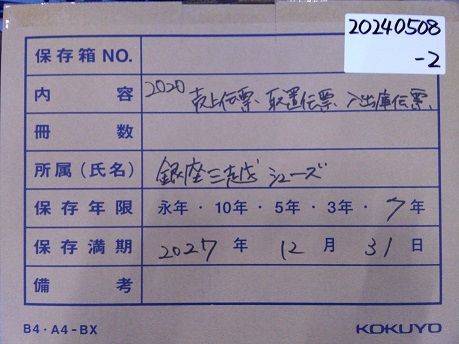 20240508
-2
保存箱NO.
内容 2020 売上伝票、取置伝票、入出庫伝票、
冊数
所属(氏名) 銀座三越店 シューズ
保存年限 永年・10年・5年・3年・7年
保存満期 2027年 12月 31日
備考
B4・A4-BX KOKUYO